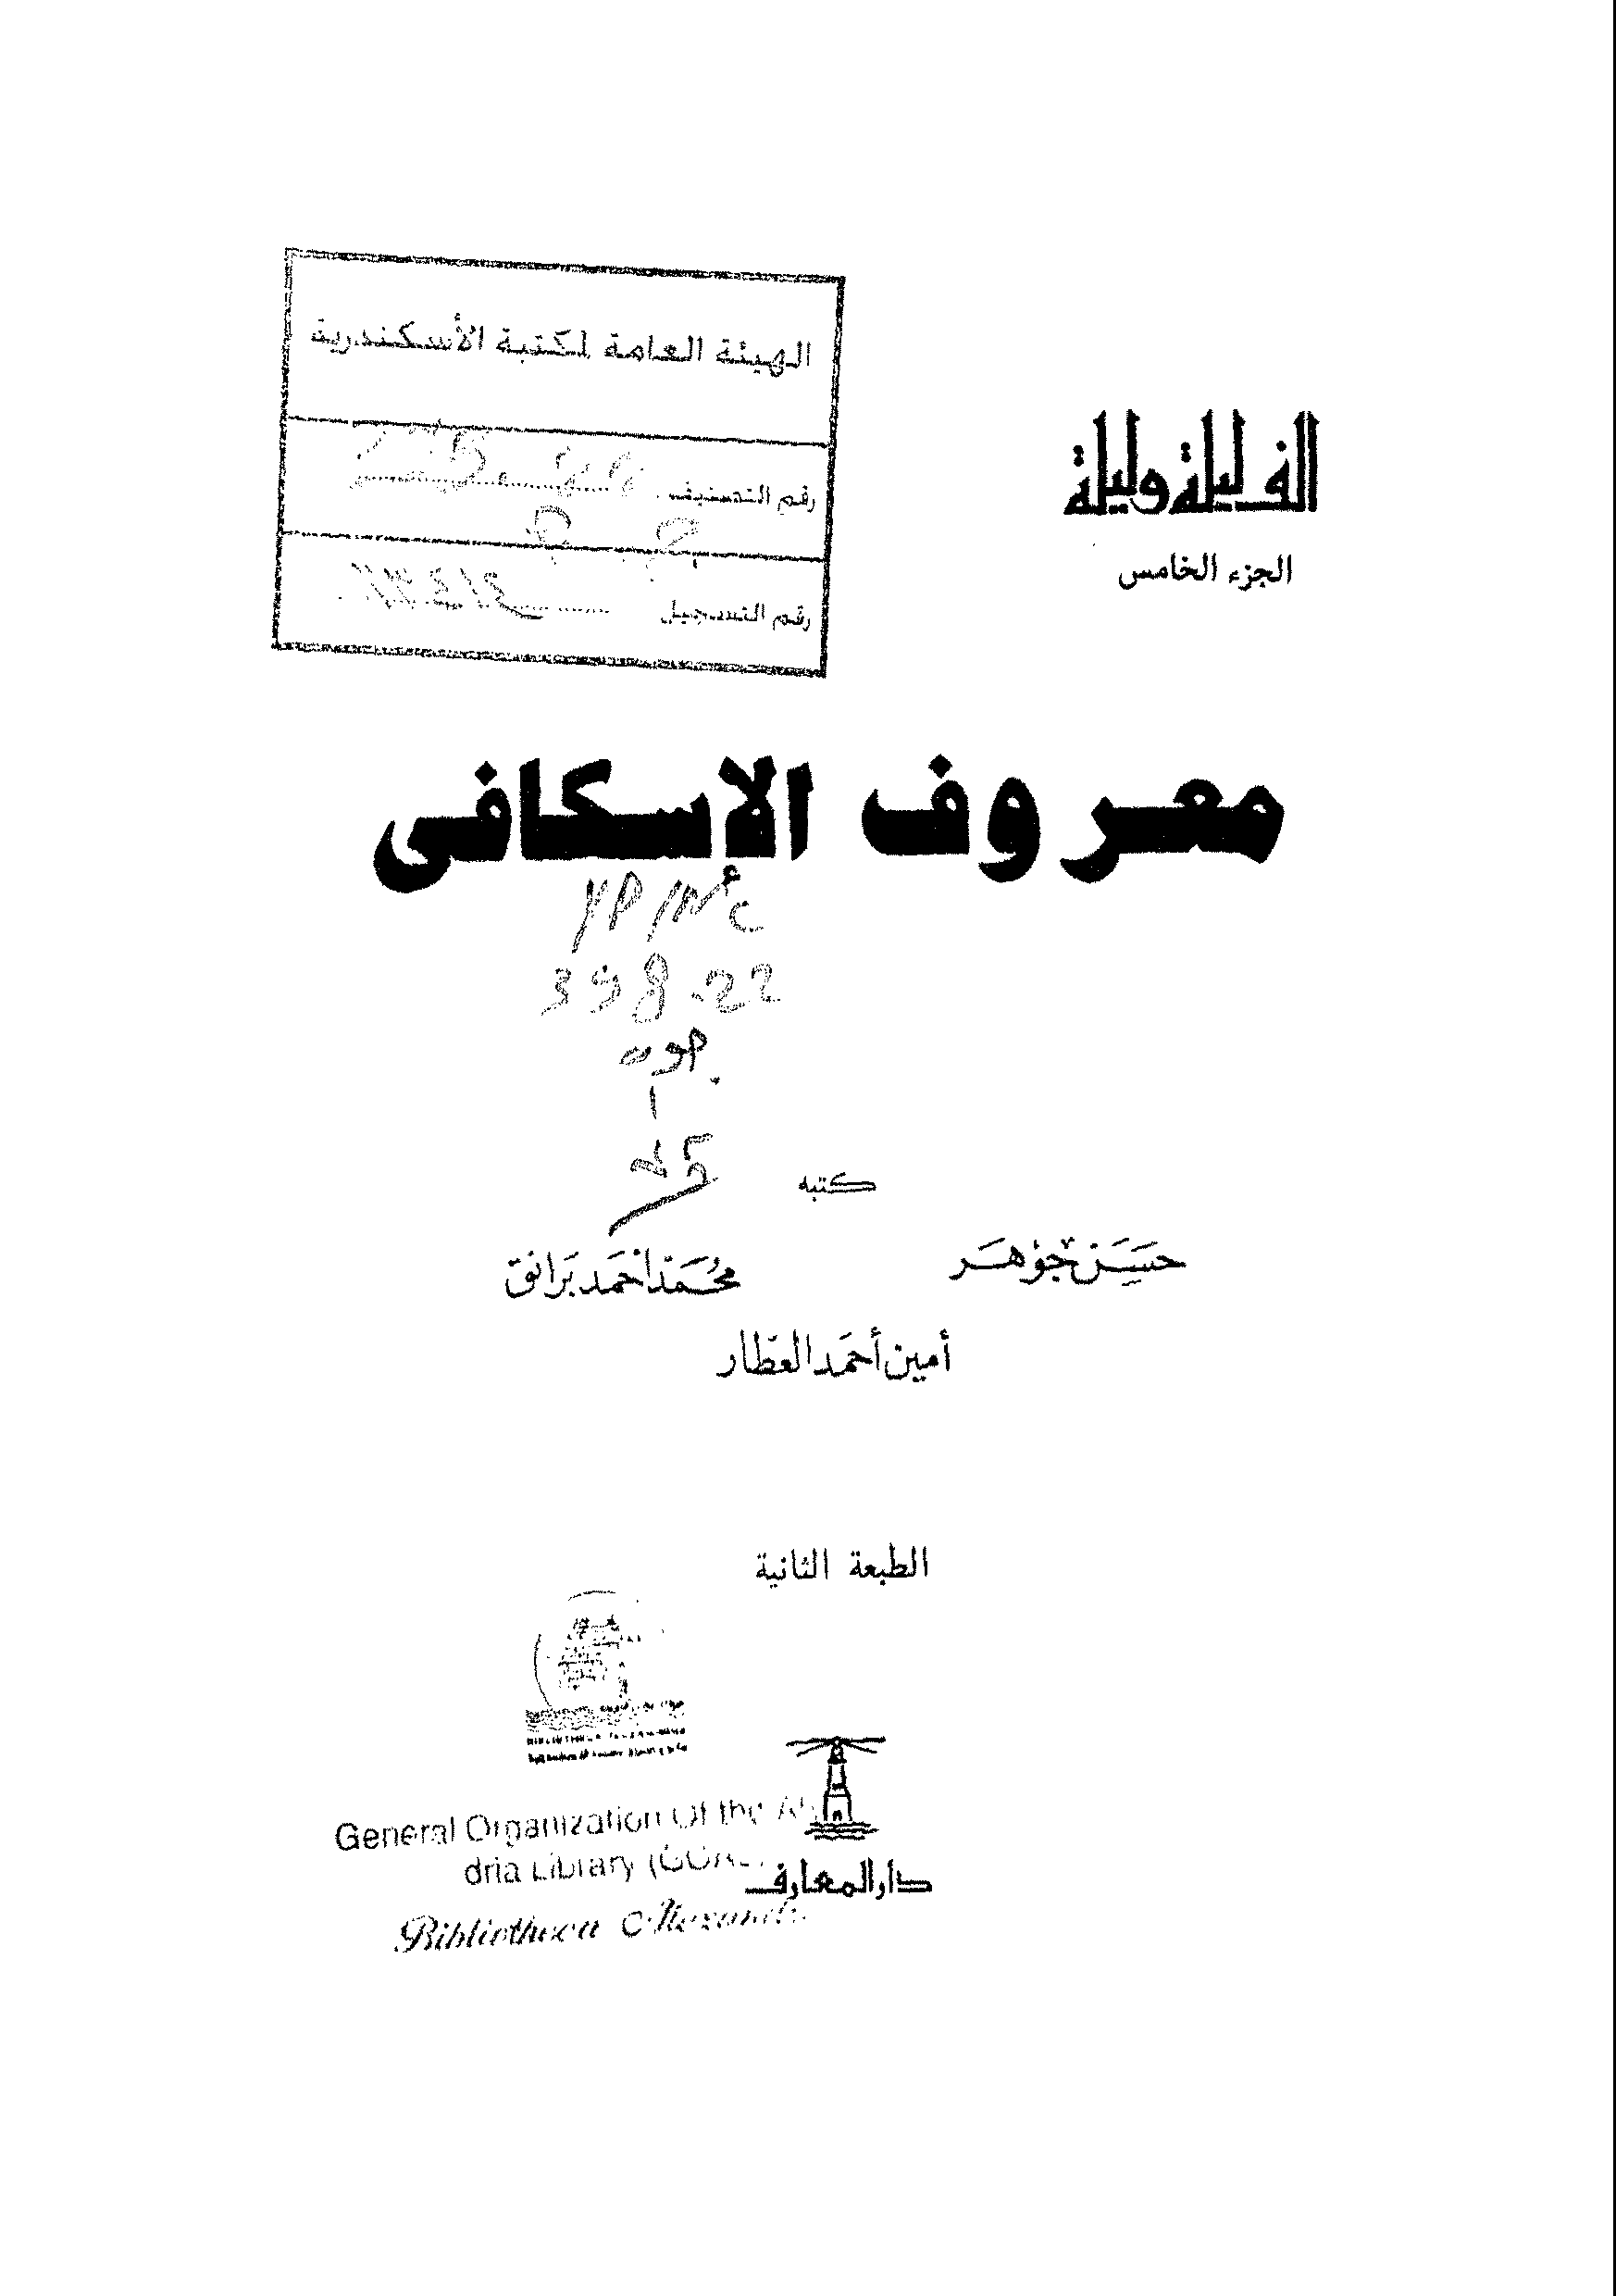 الهيئة العامة لمكتبة الأسكندرية
رقم التصنيف
رقم التسجيل
ألف ليلة وليلة
الجزء الخامس
معروف الإسكافى
398.22
كتبه
حسن جوهر محمد أحمد برانق
أمين أحمد العطار
الطبعة الثانية
دار المعارف
General Organization Of the
dria Library
Bibliotheca